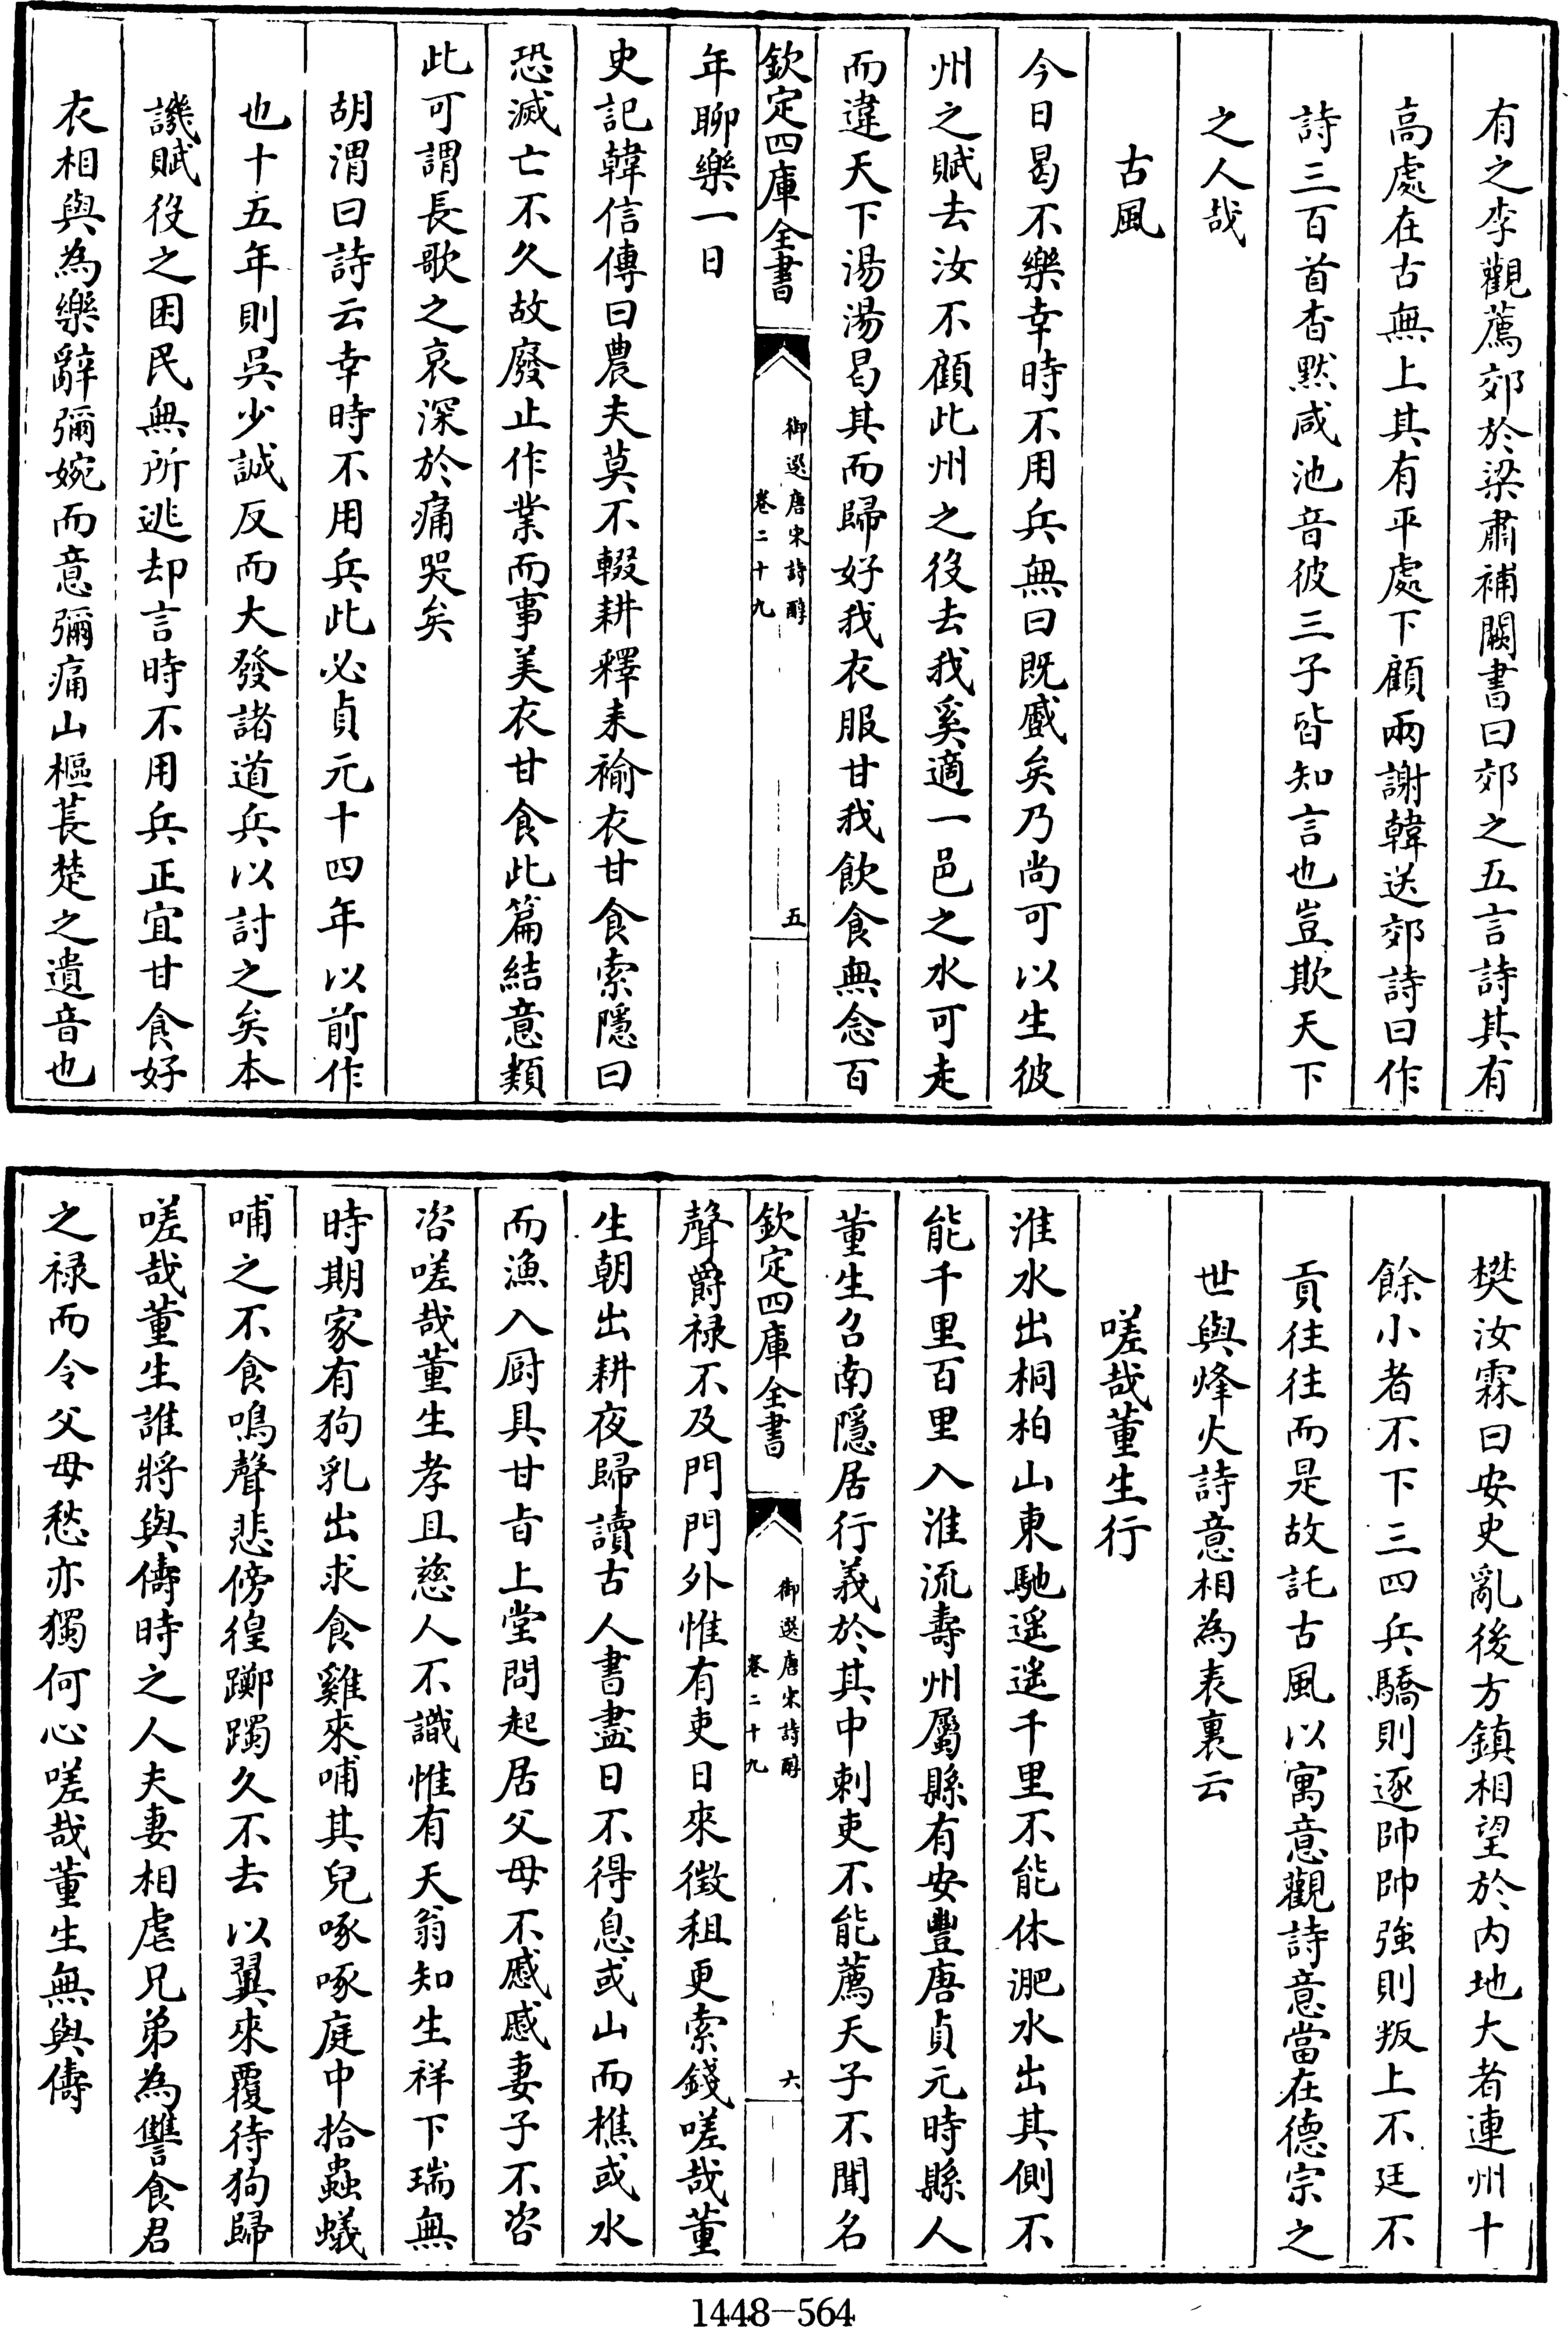 有之李觀薦郊於梁肅補闕書曰郊之五言詩其有
高處在古無上其有平處下顧兩謝韓送郊詩曰作
詩三百首杳黙咸池音彼三子皆知言也豈欺天下
之人哉
古風
今日曷不樂幸時不用兵無曰既蹙矣乃尚可以生彼
州之賦去汝不顧此州之役去我奚適一邑之水可走
而違天下湯湯曷其而歸好我衣服甘我飲食無念百
年聊樂一日
欽定四庫全書
御選唐宋詩醇
卷二十九
五
史記韓信傳曰農夫莫不輟耕釋耒褕衣甘食索隱曰
恐滅亡不久故廢止作業而事美衣甘食此篇結意類
此可謂長歌之哀深於痛哭矣
胡渭曰詩云幸時不用兵此必貞元十四年以前作
也十五年則吳少誠反而大發諸道兵以討之矣本
譏賦役之困民無所逃却言時不用兵正宜甘食好
衣相與為樂辭彌婉而意彌痛山樞萇楚之遺音也
樊汝霖曰安史亂後方鎮相望於内地大者連州十
餘小者不下三四兵驕則逐帥帥強則叛上不廷不
貢往往而是故託古風以寓意觀詩意當在德宗之
世與烽火詩意相為表裏云
嗟哉董生行
淮水出桐柏山東馳遥遥千里不能休淝水出其側不
能千里百里入淮流壽州屬縣有安豐唐貞元時縣人
董生召南隱居行義於其中刺吏不能薦天子不聞名
欽定四庫全書
御選唐宋詩醇
卷二十九
六
聲爵禄不及門門外惟有吏日來徴租更索錢嗟哉董
生朝出耕夜歸讀古人書盡日不得息或山而樵或水
而漁入厨具甘旨上堂問起居父母不慼慼妻子不咨
咨嗟哉董生孝且慈人不識惟有天翁知生祥下瑞無
時期家有狗乳出求食雞來哺其兒啄啄庭中拾蟲蟻
哺之不食鳴聲悲傍徨躑躅久不去以翼來覆待狗歸
嗟哉董生誰將與儔時之人夫妻相虐兄弟為讐食君
之禄而令父母愁亦獨何心嗟哉董生無與儔
1448-564